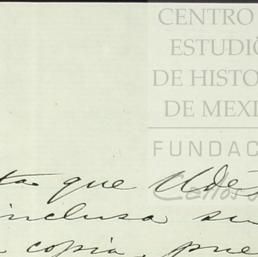 CENTRO
ESTUDI
DE HISTO
DE MEXI
FUNDAC
Carlos
ta que Udes
inclusa su
copia, pue